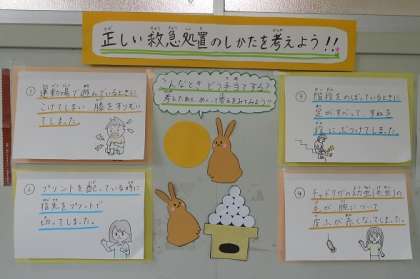 正しい救急処置のしかたを考えよう!!
こんなときどう手当てする?
考えてから、めくって答えをみてみよう!!
① 運動場で遊んでいるときに
こけてしまい、膝をすりむいて
しまった。
② プリントを配っている時に
指先をプリントで
切ってしまった。
③ 階段をのぼっているときに
足がすべって、すねを
段にぶつけてしまった。
④ チャドクガの幼虫(毛虫)の
毛が腕について
皮ふが赤くなってしまった。